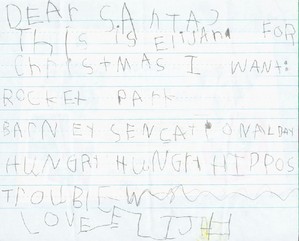 DEAr SANTA
This is Elijah FOR
Christmas I WANT:
ROCKET Park
BARNEY SENCATIONALDAY
HUNGRY HUNGH HIPPOS
TROUBLE
LOVE ELIJH